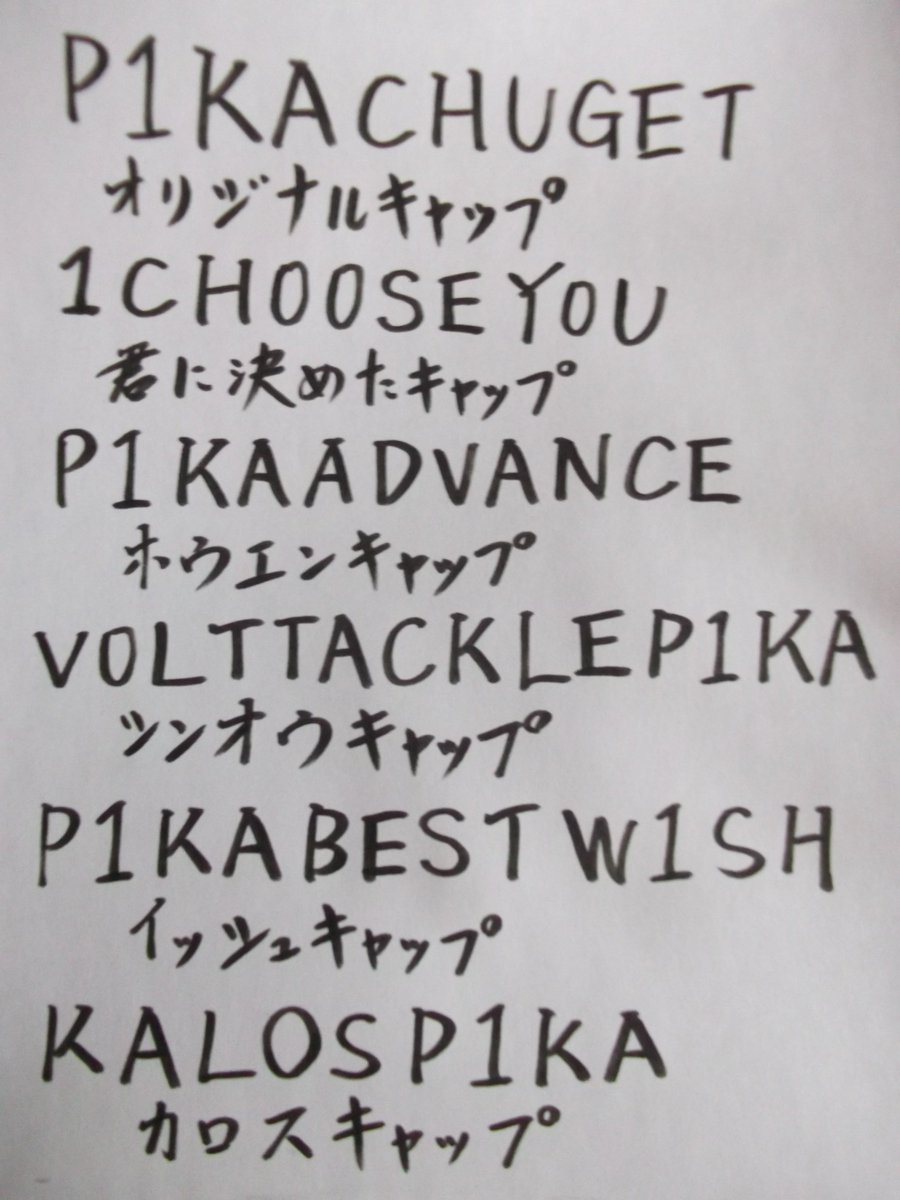 P1KACHUGET
オリジナルキャップ
1CHOOSEYOU
君に決めたキャップ
P1KAADVANCE
ホウエンキャップ
VOLTTACKLEP1KA
シンオウキャップ
P1KABESTW1SH
イッシュキャップ
KALOSP1KA
カロスキャップ